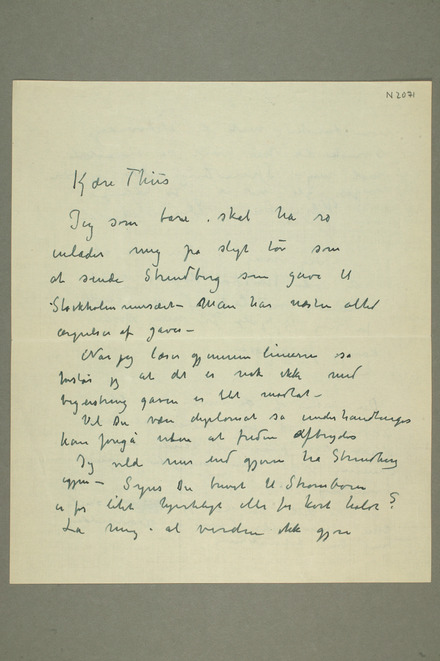 N 2071
Kjære Thiis
Jeg som bare skal ha ro
indlader mig på slyt tøv som
at sende Strindberg som gave til
Stockholm museet – Man har næsten altid
ærgrelser af gaver –
Når jeg læser gjennem linierne så
forstår jeg at det er nok ikke med
begeistring gaven er bit modtat –
Vil Du være diplomat så underhandlinger
kan foregå uden at freden afbrydes
Jeg vilde mer end gjerne ha Strindberg
igjen – Synes Du brevet til Strømbom
er for lidet hyggeligt eller for kort holdt?
La mig · at verden ikke gjøre